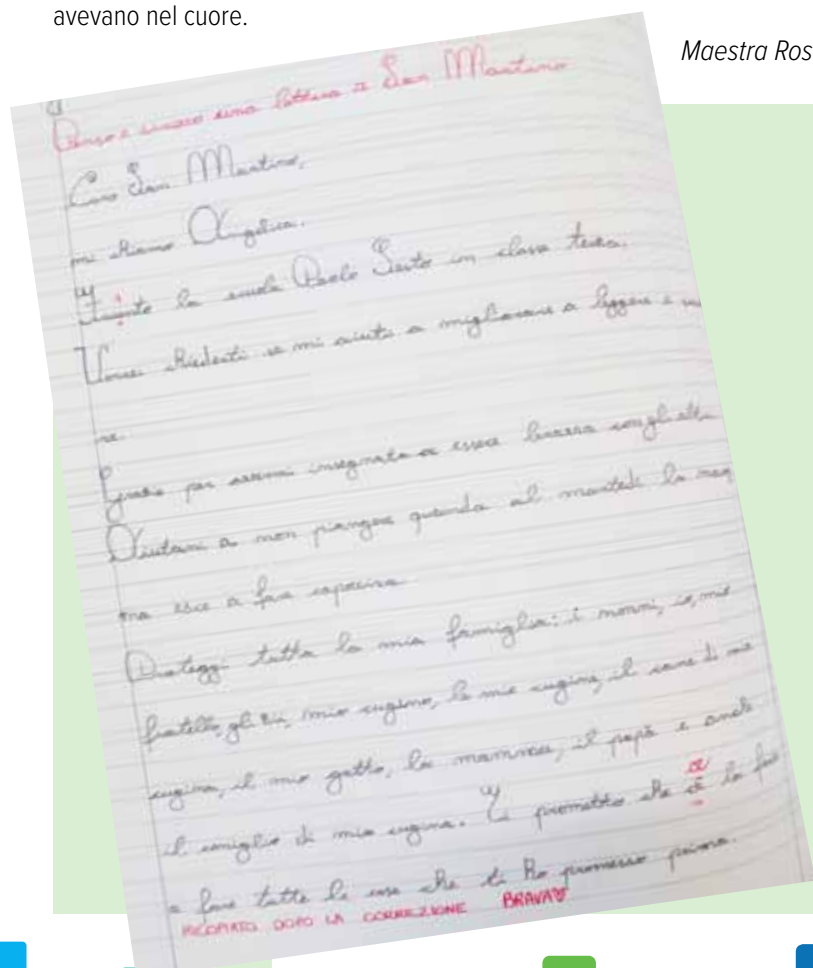 avevano nel cuore.
Maestra Ros
Penso e scrivo una lettera a San Martino
Caro San Martino,
mi chiamo Angelica.
la scuola Paolo Sesto in classe terza.
Vorrei chiederti se mi aiuti a migliorare a leggere e
re.
Grazie per avermi insegnato a essere buona con gli altri
Aiutami a non piangere quando al martedì la mam
ma esce a fare
Proteggi tutta la mia famiglia: i nonni, io, mio
fratello, gli zii, mio cugino, le mie cugine, il cane di mia
cugina, il mio gatto, la mamma, il papà e anche
il coniglio di mia cugina. Ti prometto che ce la fai
a fare tutte le cose che ti ho promesso prima.
RICOPIATO DOPO LA CORREZIONE BRAVA